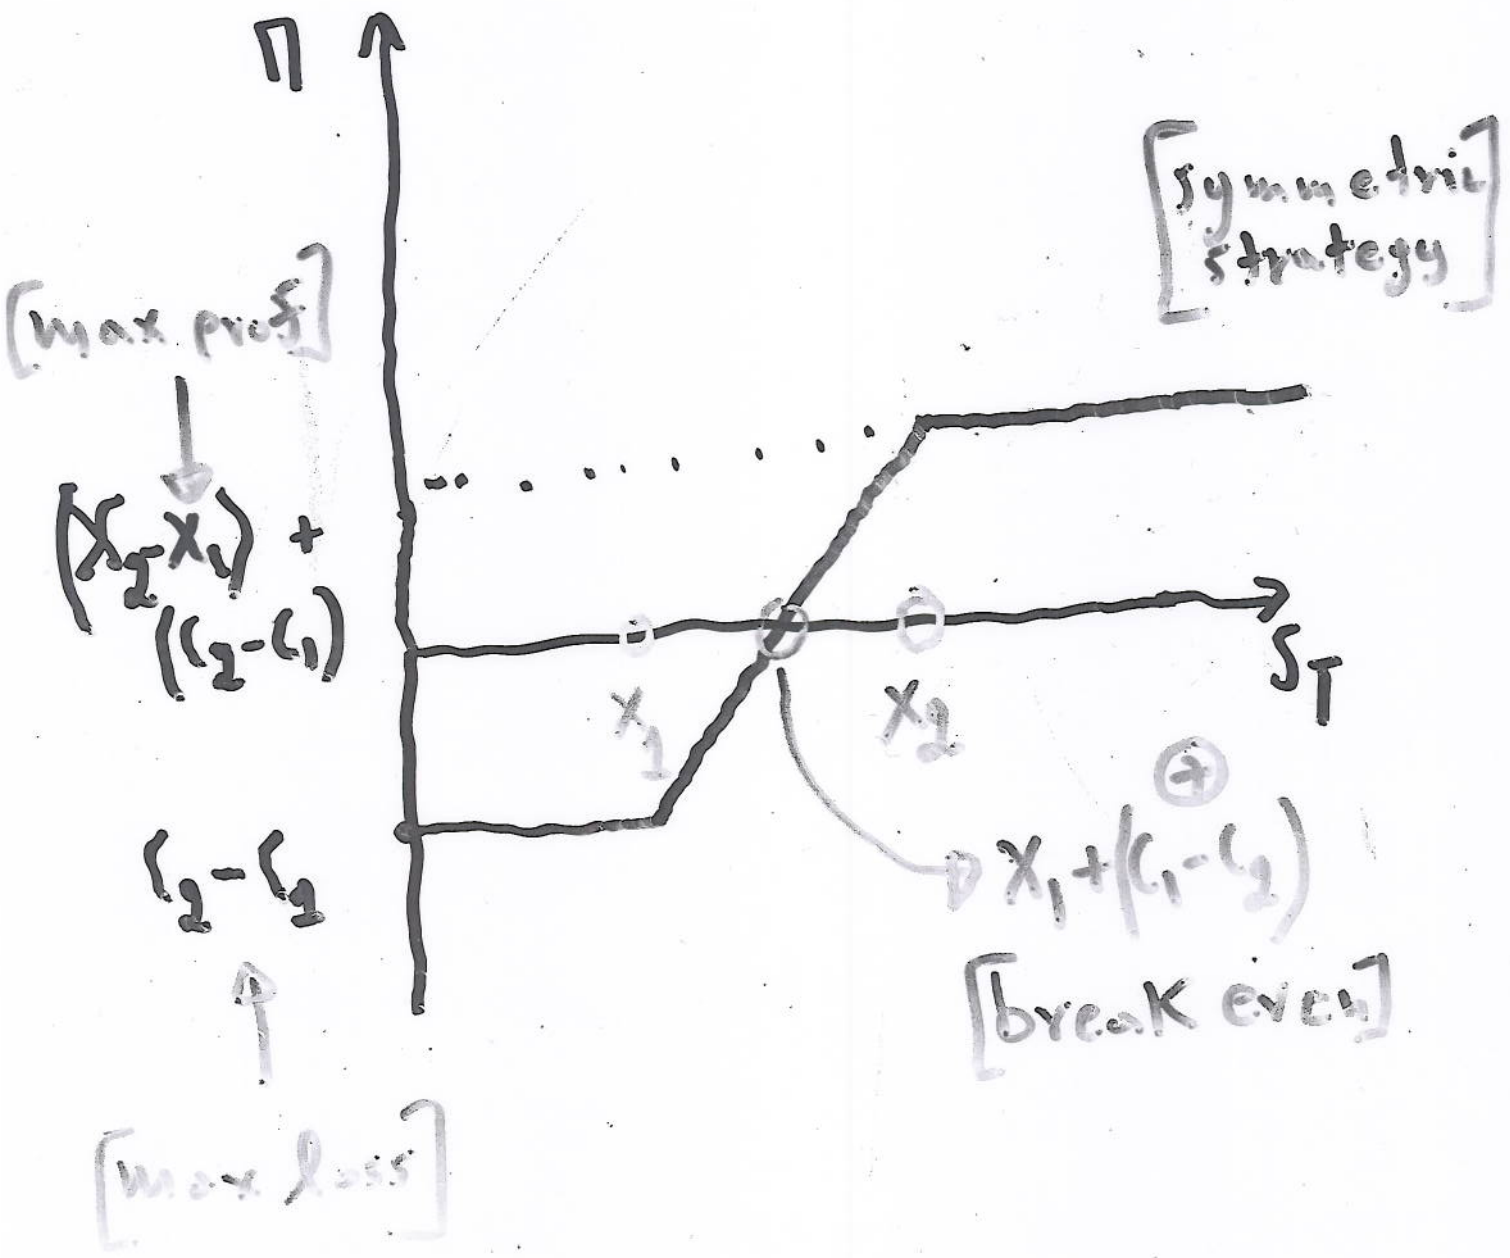 Π
[symmetric
strategy]
[max prof]
(X₂-X₁) +
(C₂-C₁)
S_T
X₁
X₂
+
C₂-C₂
X₁+(C₁-C₂)
[break even]
[max loss]